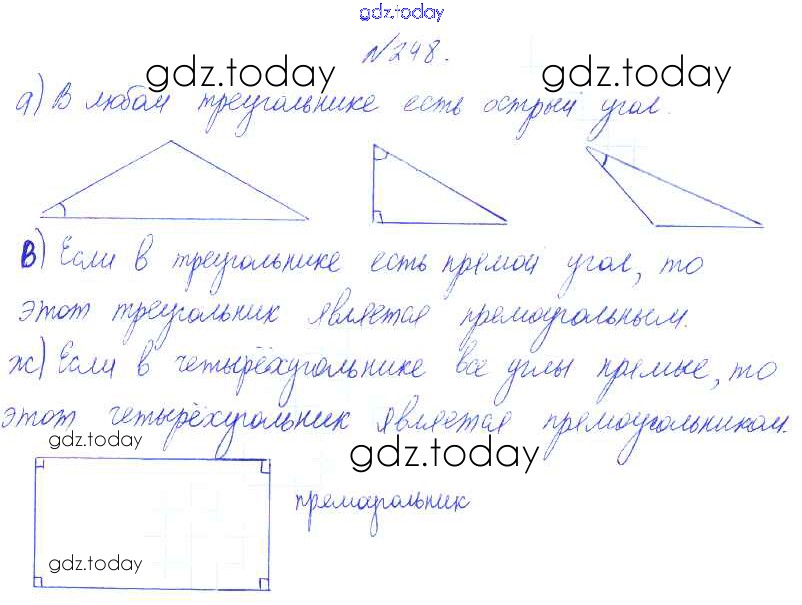 gdz.today
№248.
gdz.today gdz.today
а) В любом треугольнике есть острый угол.
в) Если в треугольнике есть прямой угол, то
этот треугольник является прямоугольным.
ж) Если в четырёхугольнике все углы прямые, то
этот четырёхугольник является прямоугольником.
gdz.today
gdz.today
прямоугольник
gdz.today